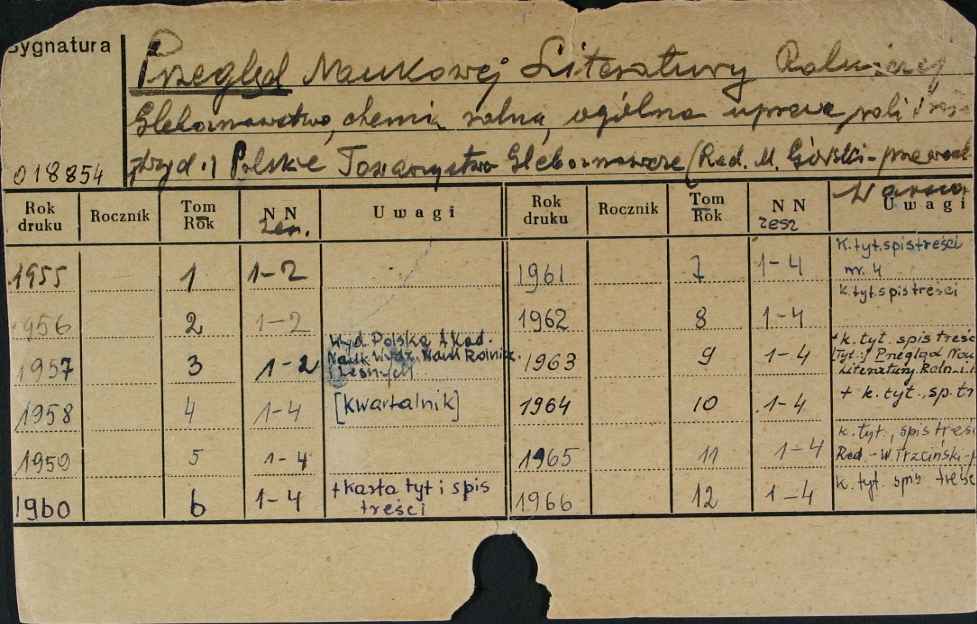 Sygnatura
Przegląd Naukowej Literatury Rolniczej
Gleboznawstwo, chemia rolna, ogólna uprawa roli i
018854 Polskie Towarzystwo Gleboznawcze (Red. M. Górski - przewod
Warszaw
Rok druku Rocznik Tom Rok NN zesz. Uwagi Rok druku Rocznik Tom Rok NN zesz Uwagi
1955 1 1-2 1961 7 1-4 K. tyt. spis treści nr. 4
1956 2 1-2 1962 8 1-4 K. tyt. spis treści
1957 3 1-2 Wyd. Polska Akad. Nauk. Wydz. Nauk Rolnicz. i Leśnych 1963 9 1-4 + k. tyt. spis treśc Tyt.: Przegląd Nau Literatury Roln. i
1958 4 1-4 [Kwartalnik] 1964 10 1-4 + k. tyt., sp. tr
1959 5 1-4 1965 11 1-4 k. tyt., spis treśc Red - W. Trzciński - p
1960 6 1-4 + karta tyt i spis treści 1966 12 1-4 k. tyt. spis treśc